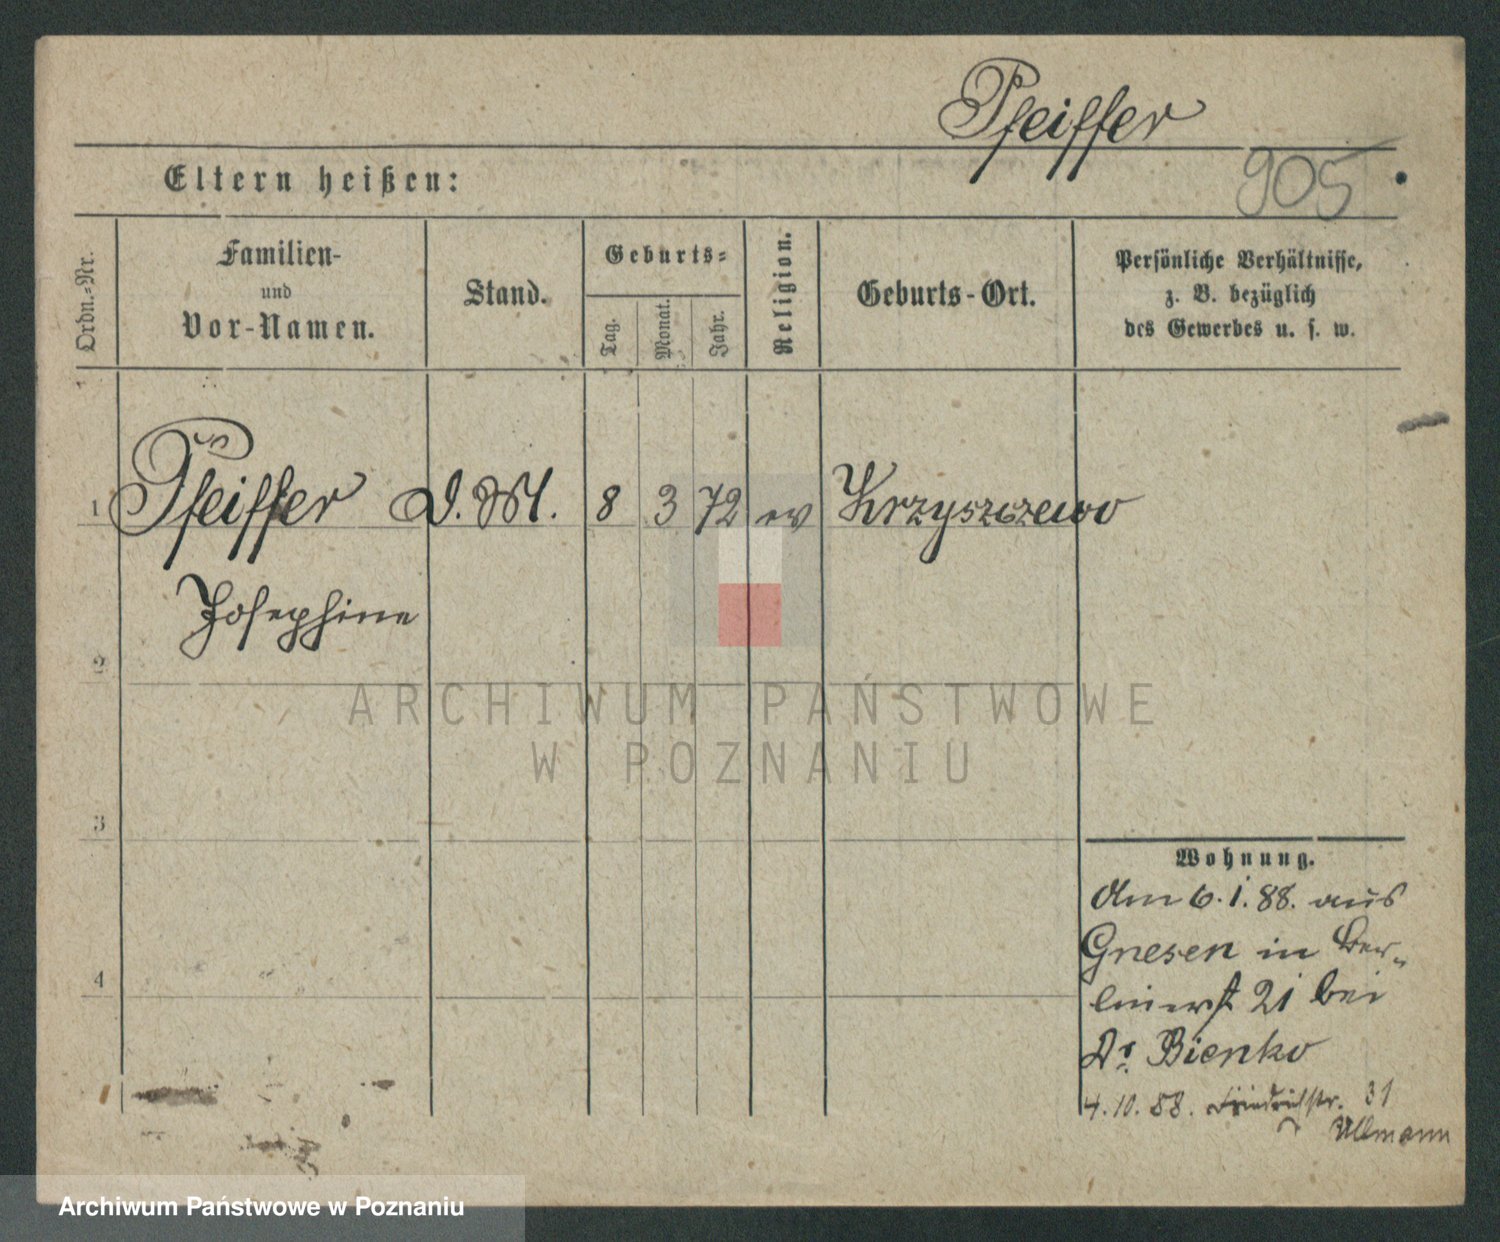 Pfeiffer
905
Eltern heißen:
Ordn.-Nr.
Familien-
und
Vor-Namen.
Stand.
Geburts-
Tag.
Monat.
Jahr.
Religion.
Geburts-Ort.
Persönliche Verhältnisse,
z. B. bezüglich
des Gewerbes u. s. w.
1 Pfeiffer D. M. 8 3 72 ev Krzyszczewo
Josephine
2
3
4
Wohnung.
Am 6.1.88. aus
Gnesen in Ber-
linerst 21 bei
Dr. Bienko
4.10.88. Friedrichstr. 31
Ullmann
ARCHIWUM PAŃSTWOWE
W POZNANIU
Archiwum Państwowe w Poznaniu